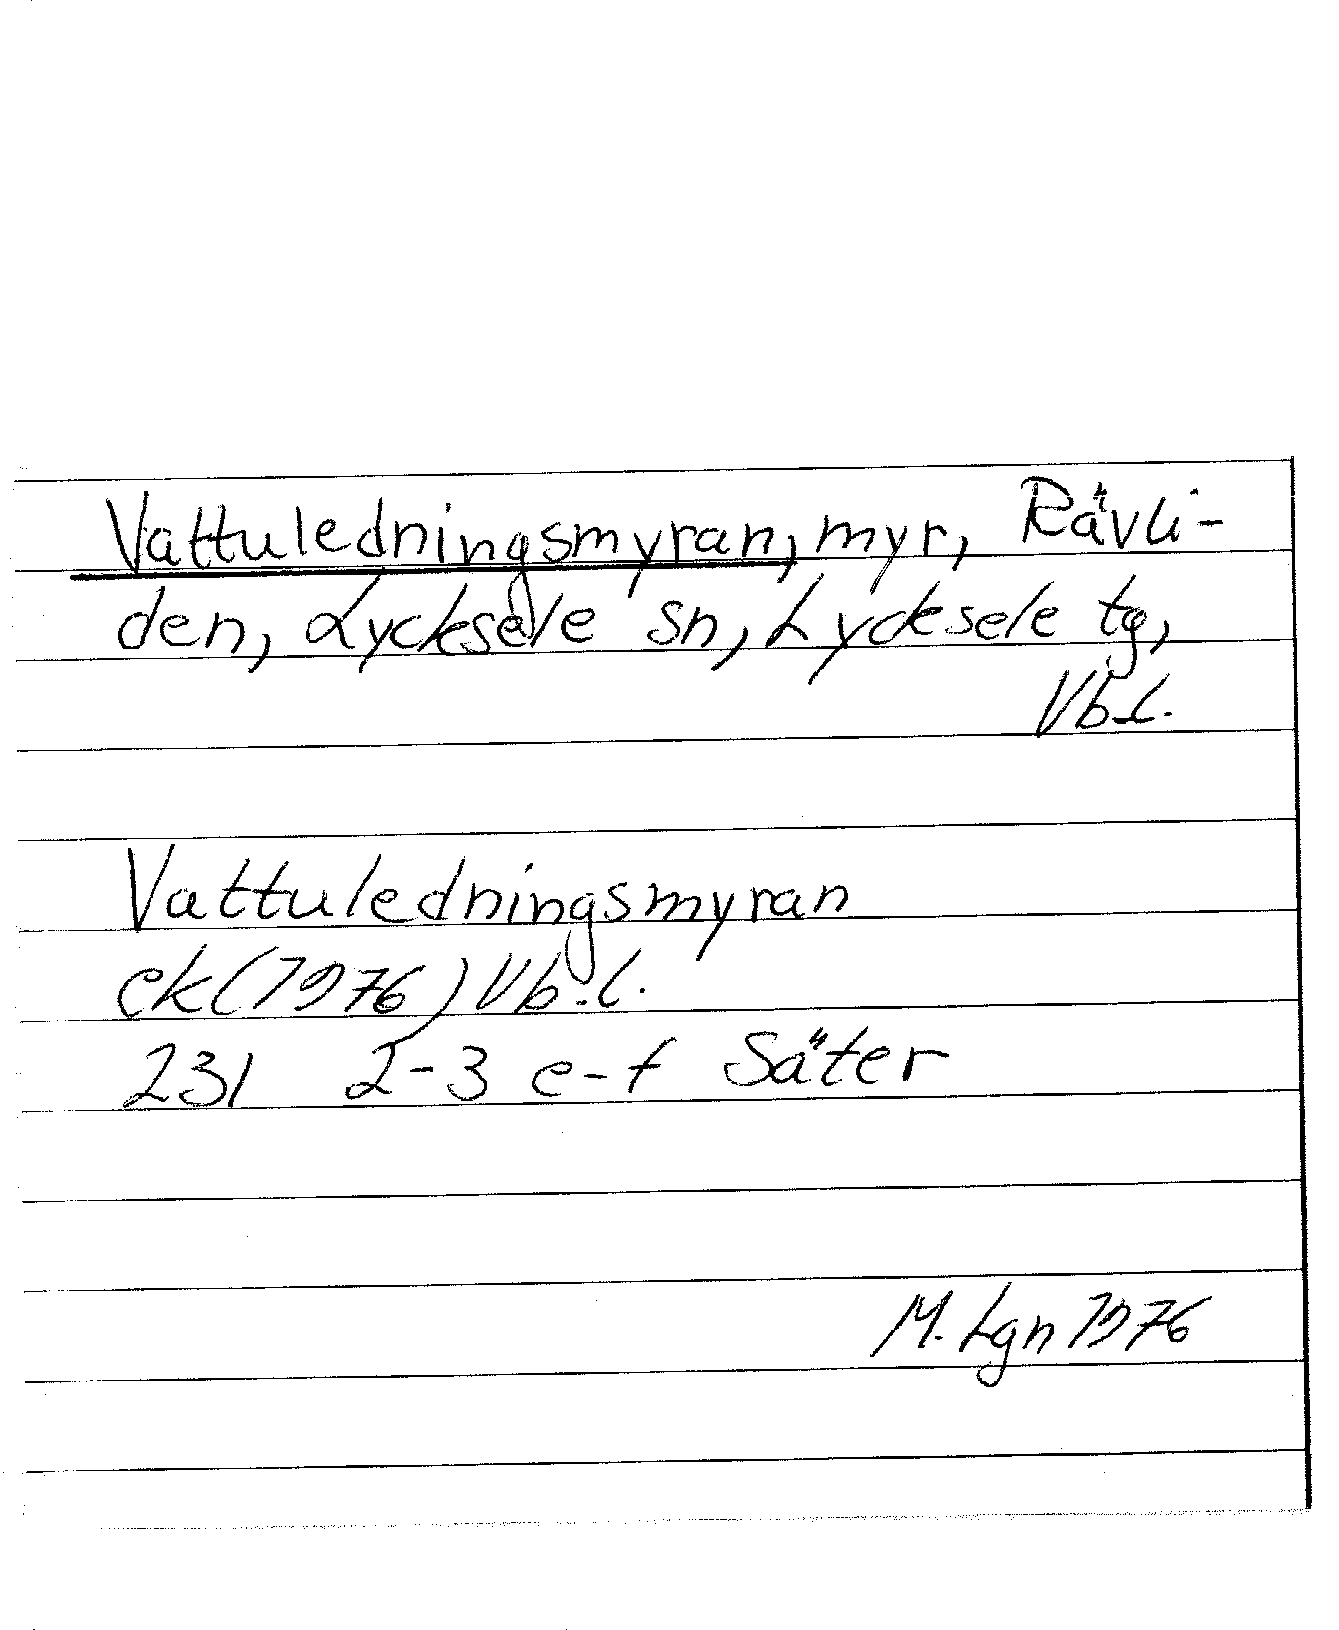 Vattuledningsmyran, myr, Rävli-
den, Lycksele sn, Lycksele tg,
Vb.l.
Vattuledningsmyran
ek(1976) Vb.l.
231 2-3 e-f Säter
M. Lgn 1976